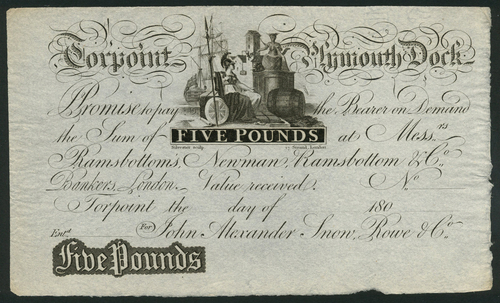 Torpoint Plymouth Dock
Promise to pay the Bearer on Demand
the Sum of FIVE POUNDS at Mess.rs
Ramsbottoms, Newman, Ramsbottom & Co.
Bankers, London. Value received. No.
Torpoint the day of 180
Entd. For John Alexander Snow, Rowe & Co.
Five Pounds